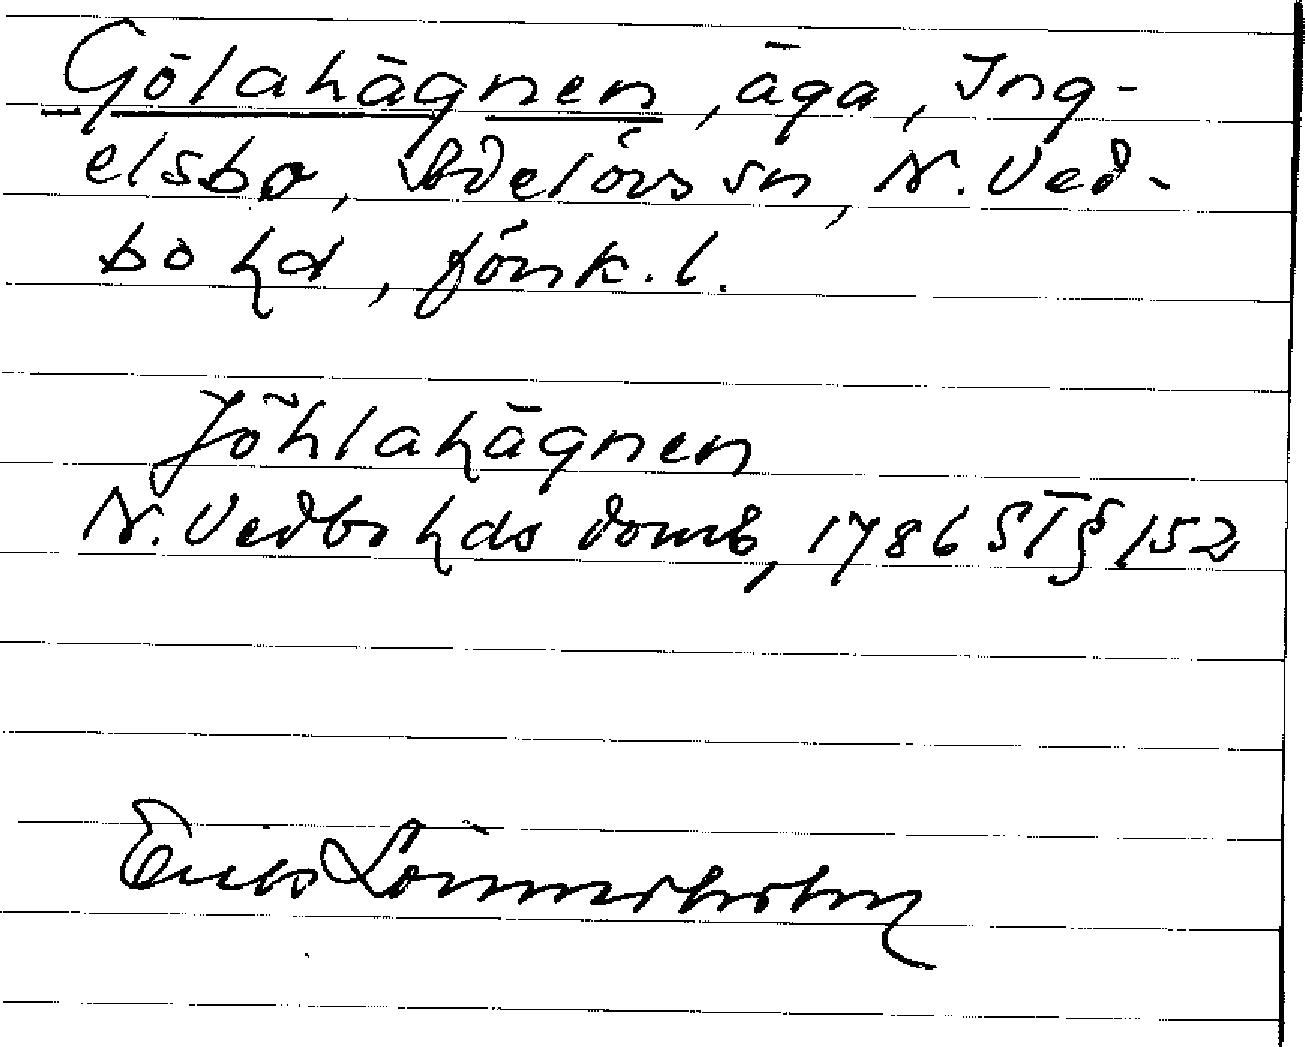 Gölahägnen, äga, Ing-
elsbo, Adelövs sn, N. Ved-
bo hd, Jönk. l.
Jöhlahägnen
N. Vedbo hds domb, 1786 ST § 152
Erik Lönnerholm